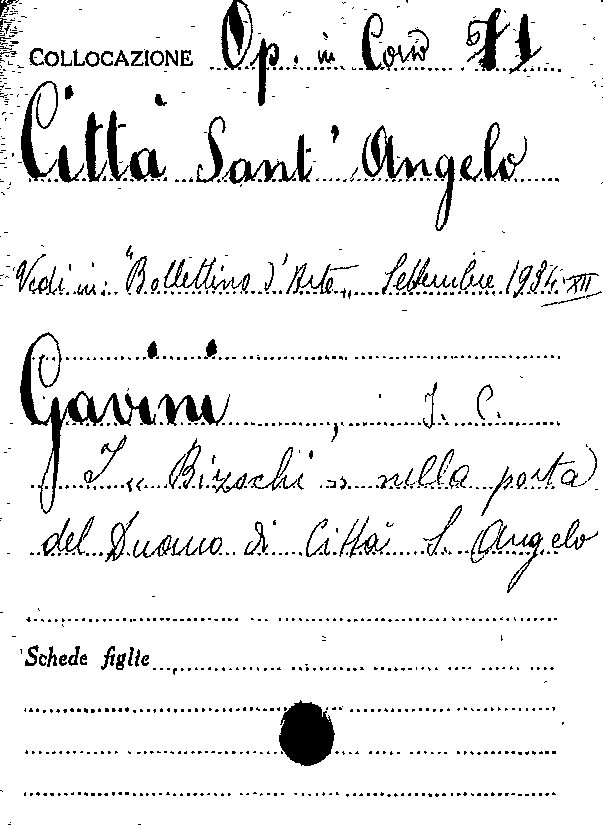 COLLOCAZIONE Op. in Corso 71
Città Sant' Angelo
Vedi in: "Bollettino d'Arte„ Settembre 1934·XII
Gavini, I. C.
I « Bizochi » nella porta
del Duomo di Città S. Angelo
Schede figlie